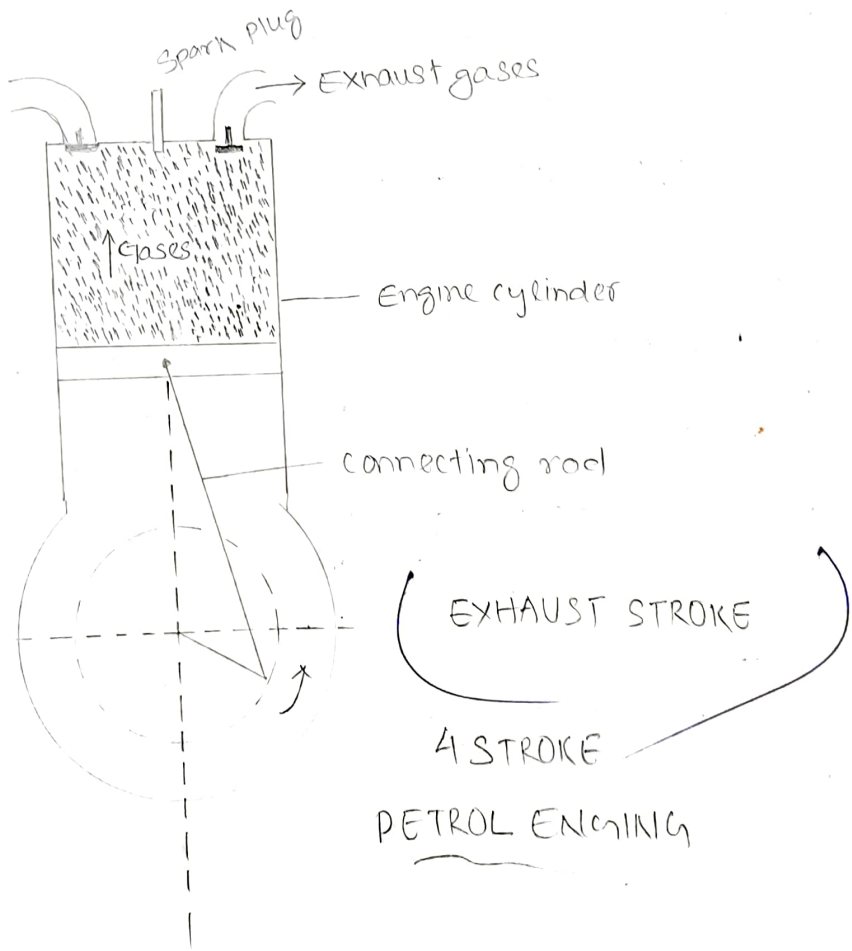 Spark plug
Exhaust gases
Gases
Engine cylinder
connecting rod
EXHAUST STROKE
4 STROKE
PETROL ENGING